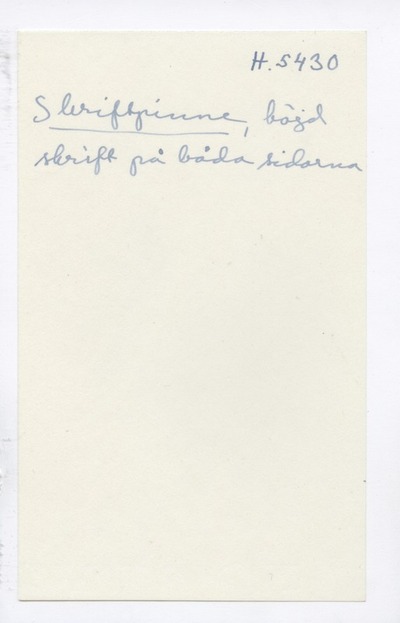 H.5430
Skriftpinne, böjd
skrift på båda sidorna